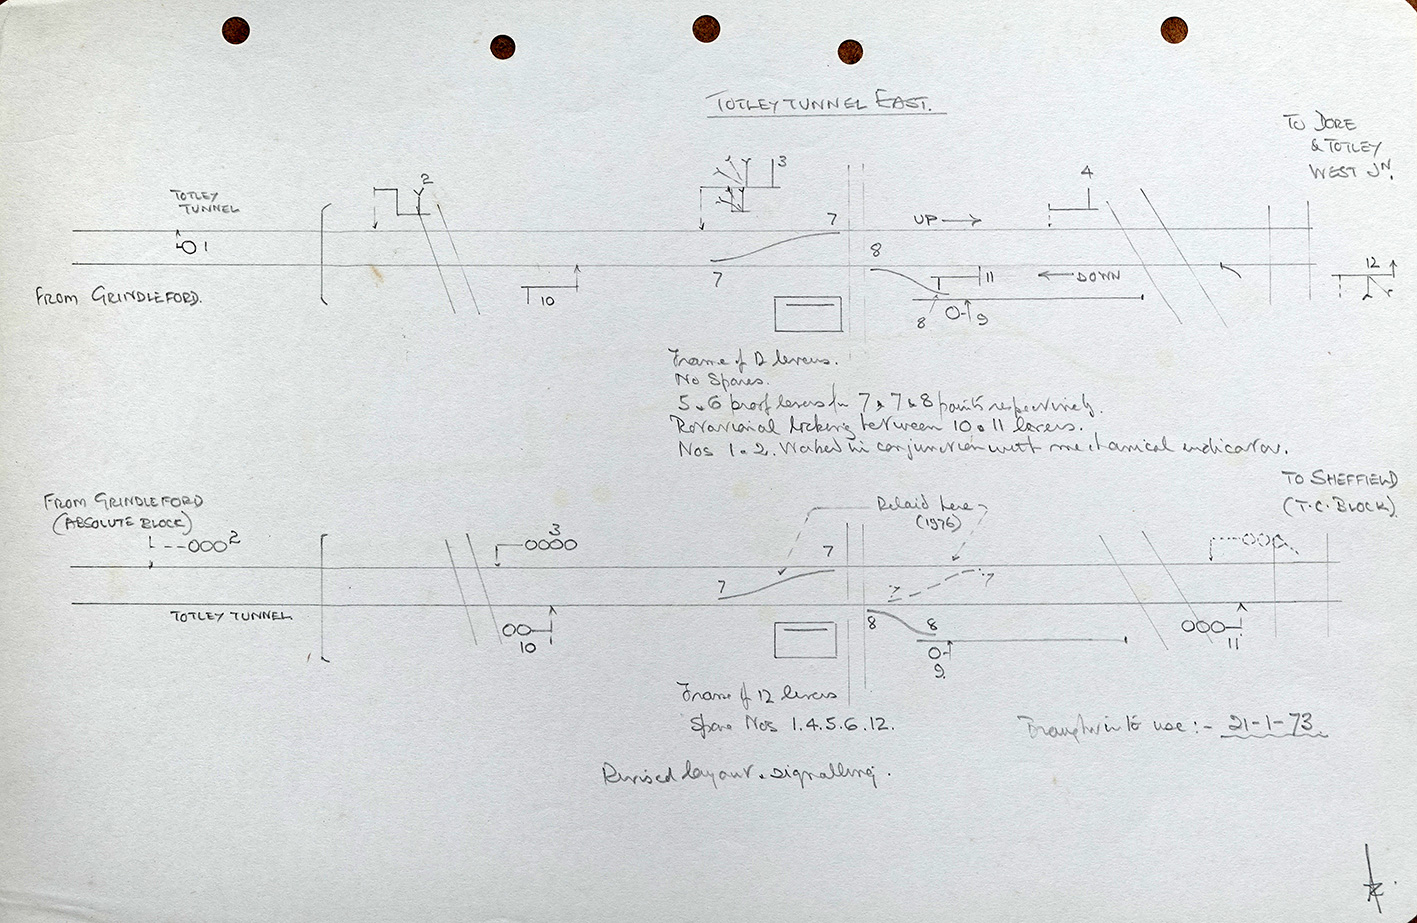 TOTLEY TUNNEL EAST.
TO DORE
& TOTLEY
WEST JN.
TOTLEY
TUNNEL
1
2
3
4
7
UP
8
7
10
11
DOWN
12
8
9
FROM GRINDLEFORD.
Frame of 12 levers.
No Spares.
5 & 6 proof levers for 7 & 7 & 8 points respectively.
Rotational locking between 10 & 11 levers.
Nos 1 & 2. Worked in conjunction with mechanical indicator.
FROM GRINDLEFORD
(ABSOLUTE BLOCK)
TO SHEFFIELD
(T.C. BLOCK)
Relaid here
(1976)
2
3
7
7
7
7
TOTLEY TUNNEL
10
8
8
9.
11
Frame of 12 levers
Spare Nos 1.4.5.6.12.
Brought into use :- 21-1-73.
Revised layout & signalling.